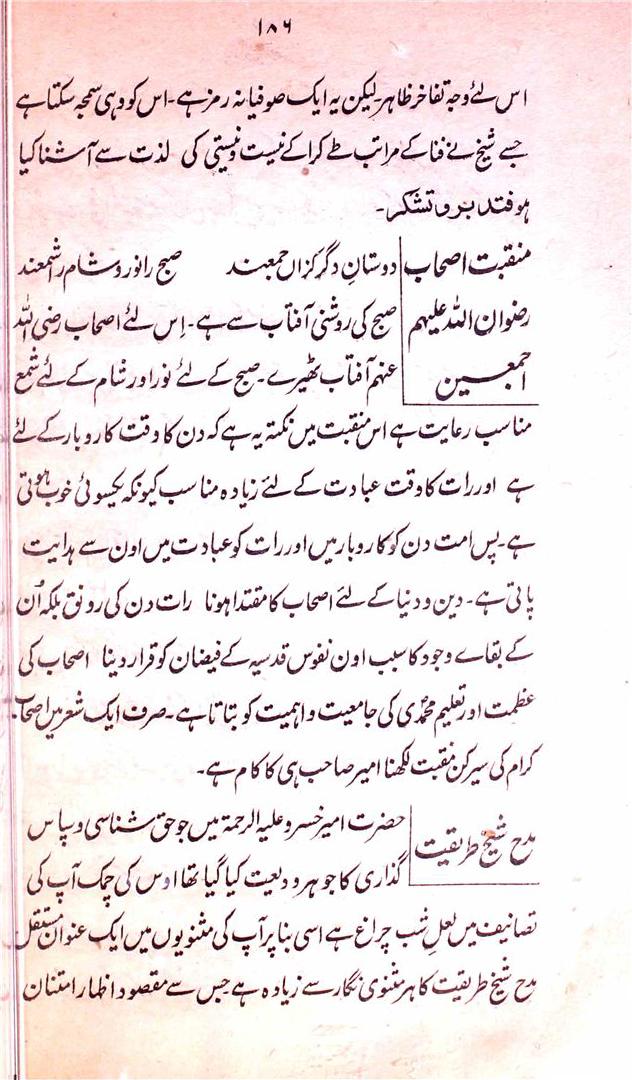 ۱۸۶
اس لئے وجہ تفاخر ظاہر۔ لیکن یہ ایک صوفیانہ رمز ہے۔ اس کو وہی سمجھ سکتا ہے
جسے شیخ نے فنا کے مراتب طے کرا کے نیست و نیستی کی لذت سے آشنا کیا
ہو فتدبر و تشکر۔
منقبت اصحاب
رضوان اللہ علیہم
اجمعین
دوستانِ دگر کزاں جمعند صبح را نور و شام را شمعند
صبح کی روشنی آفتاب سے ہے۔ اِس لئے اصحاب رضی اللہ
عنہم آفتاب ٹھیرے۔ صبح کے لئے نور اور شام کے لئے شمع
مناسب رعایت ہے اس منقبت میں نکتہ یہ ہے کہ دن کا وقت کاروبار کے لئے
ہے اور رات کا وقت عبادت کے لئے زیادہ مناسب کیونکہ یکسوئی خوب ہوتی
ہے۔ پس امت دن کو کاروبار میں اور رات کو عبادت میں اون سے ہدایت
پاتی ہے۔ دین و دنیا کے لئے اصحاب کا مقتدا ہونا رات دن کی رونق بلکہ اُن
کے بقاے وجود کا سبب اون نفوس قدسیہ کے فیضان کو قرار دینا اصحاب کی
عظمت اور تعلیم محمدؐی کی جامعیت و اہمیت کو بتاتا ہے۔ صرف ایک شعر میں اصحاب
کرام کی سیر کن منقبت لکھنا امیر صاحب ہی کا کام ہے۔
مدح شیخ طریقیت
حضرت امیر خسرو علیہ الرحمۃ میں جو حق شناسی و سپاس
گذاری کا جوہر ودیعت کیا گیا تھا اوس کی چمک آپ کی
تصانیف میں لعلِ شب چراغ ہے اسی بنا پر آپ کی مثنویوں میں ایک عنوان مستقل
مدح شیخ طریقیت کا ہر مثنوی نگار سے زیادہ ہے جس سے مقصود اظہار امتنان